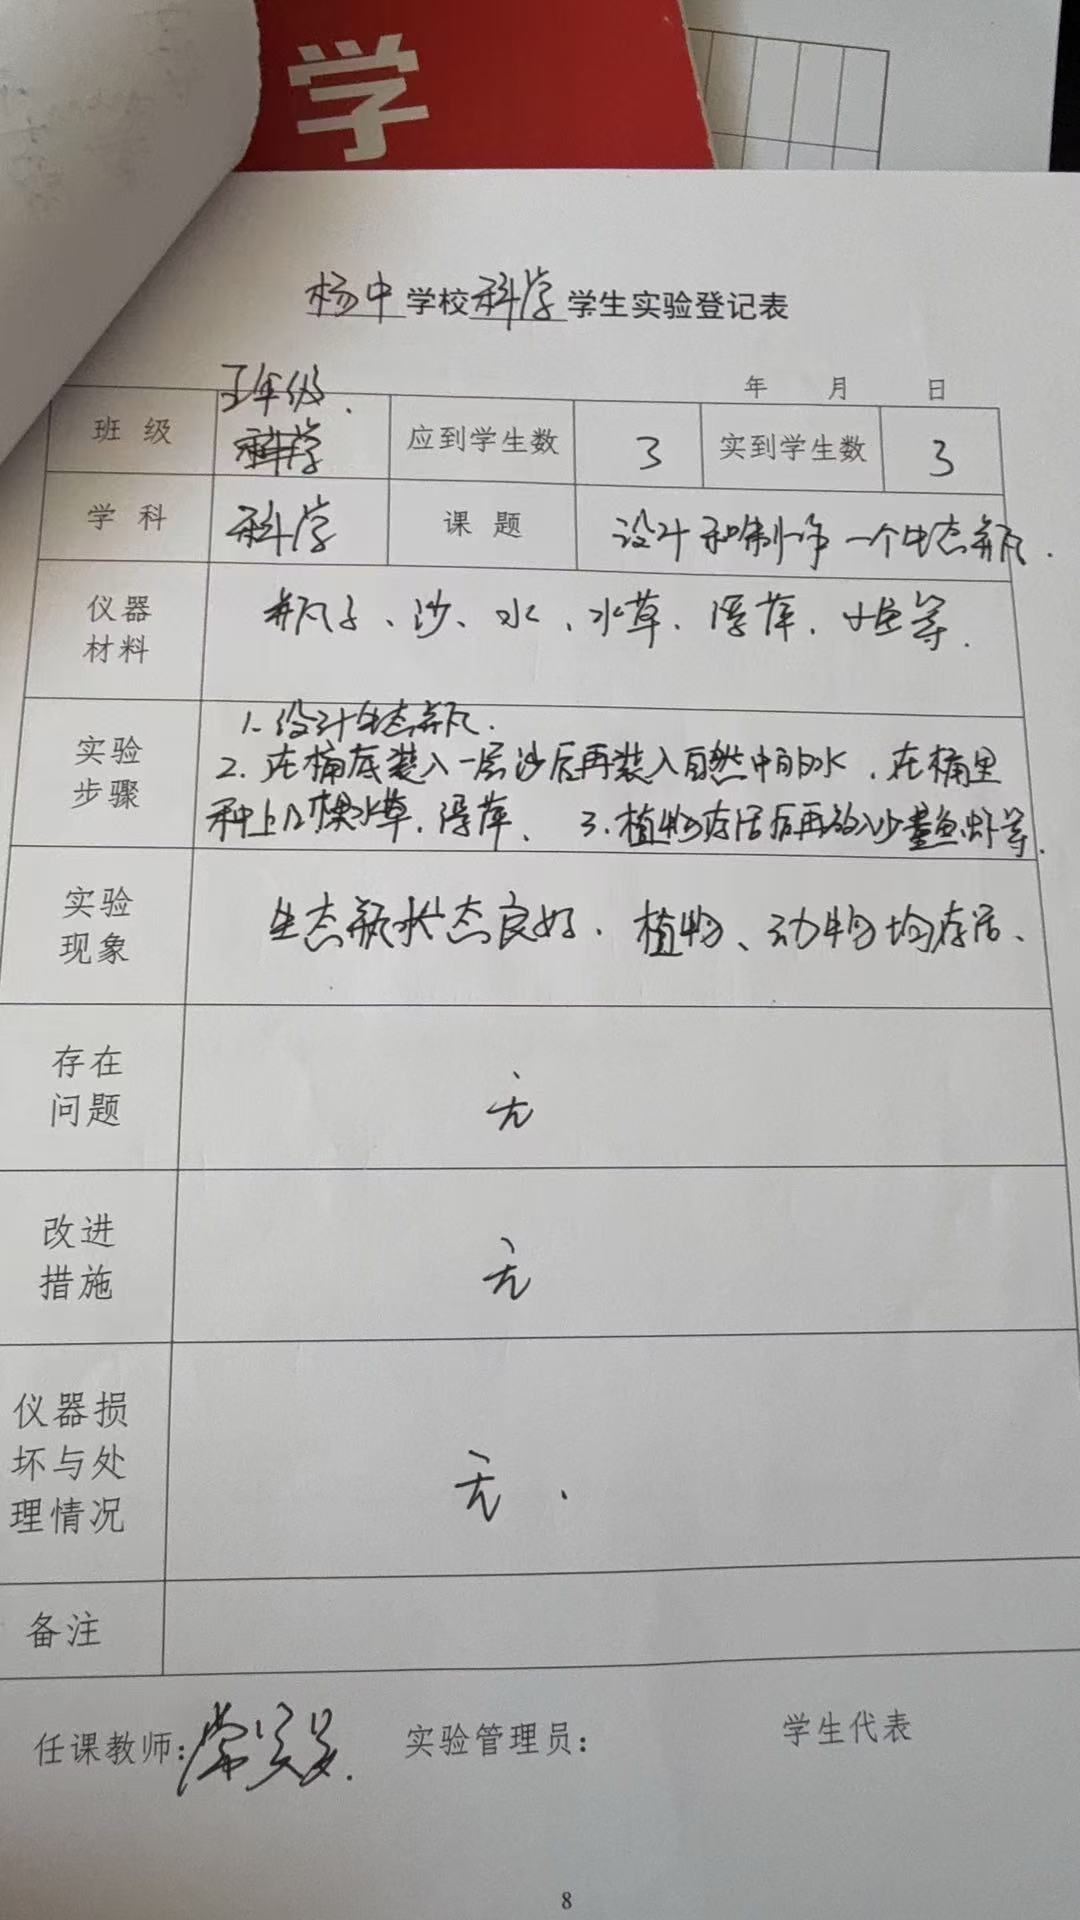 学
杨中学校科学学生实验登记表
年 月 日
五年级.
班级 科学 应到学生数 3 实到学生数 3
学科 科学 课题 设计和制作一个生态瓶.
仪器材料 瓶子、沙、水、水草、浮萍、小鱼等.
实验步骤 1.设计生态瓶.
2.在桶底装入一层沙后再装入自然中的水,在桶里
种上几棵水草,浮萍、 3.植物存活后再放入少量鱼虾等.
实验现象 生态瓶状态良好.植物、动物均存活、
存在问题 无
改进措施 无
仪器损坏与处理情况 无.
备注
任课教师: 实验管理员: 学生代表
8